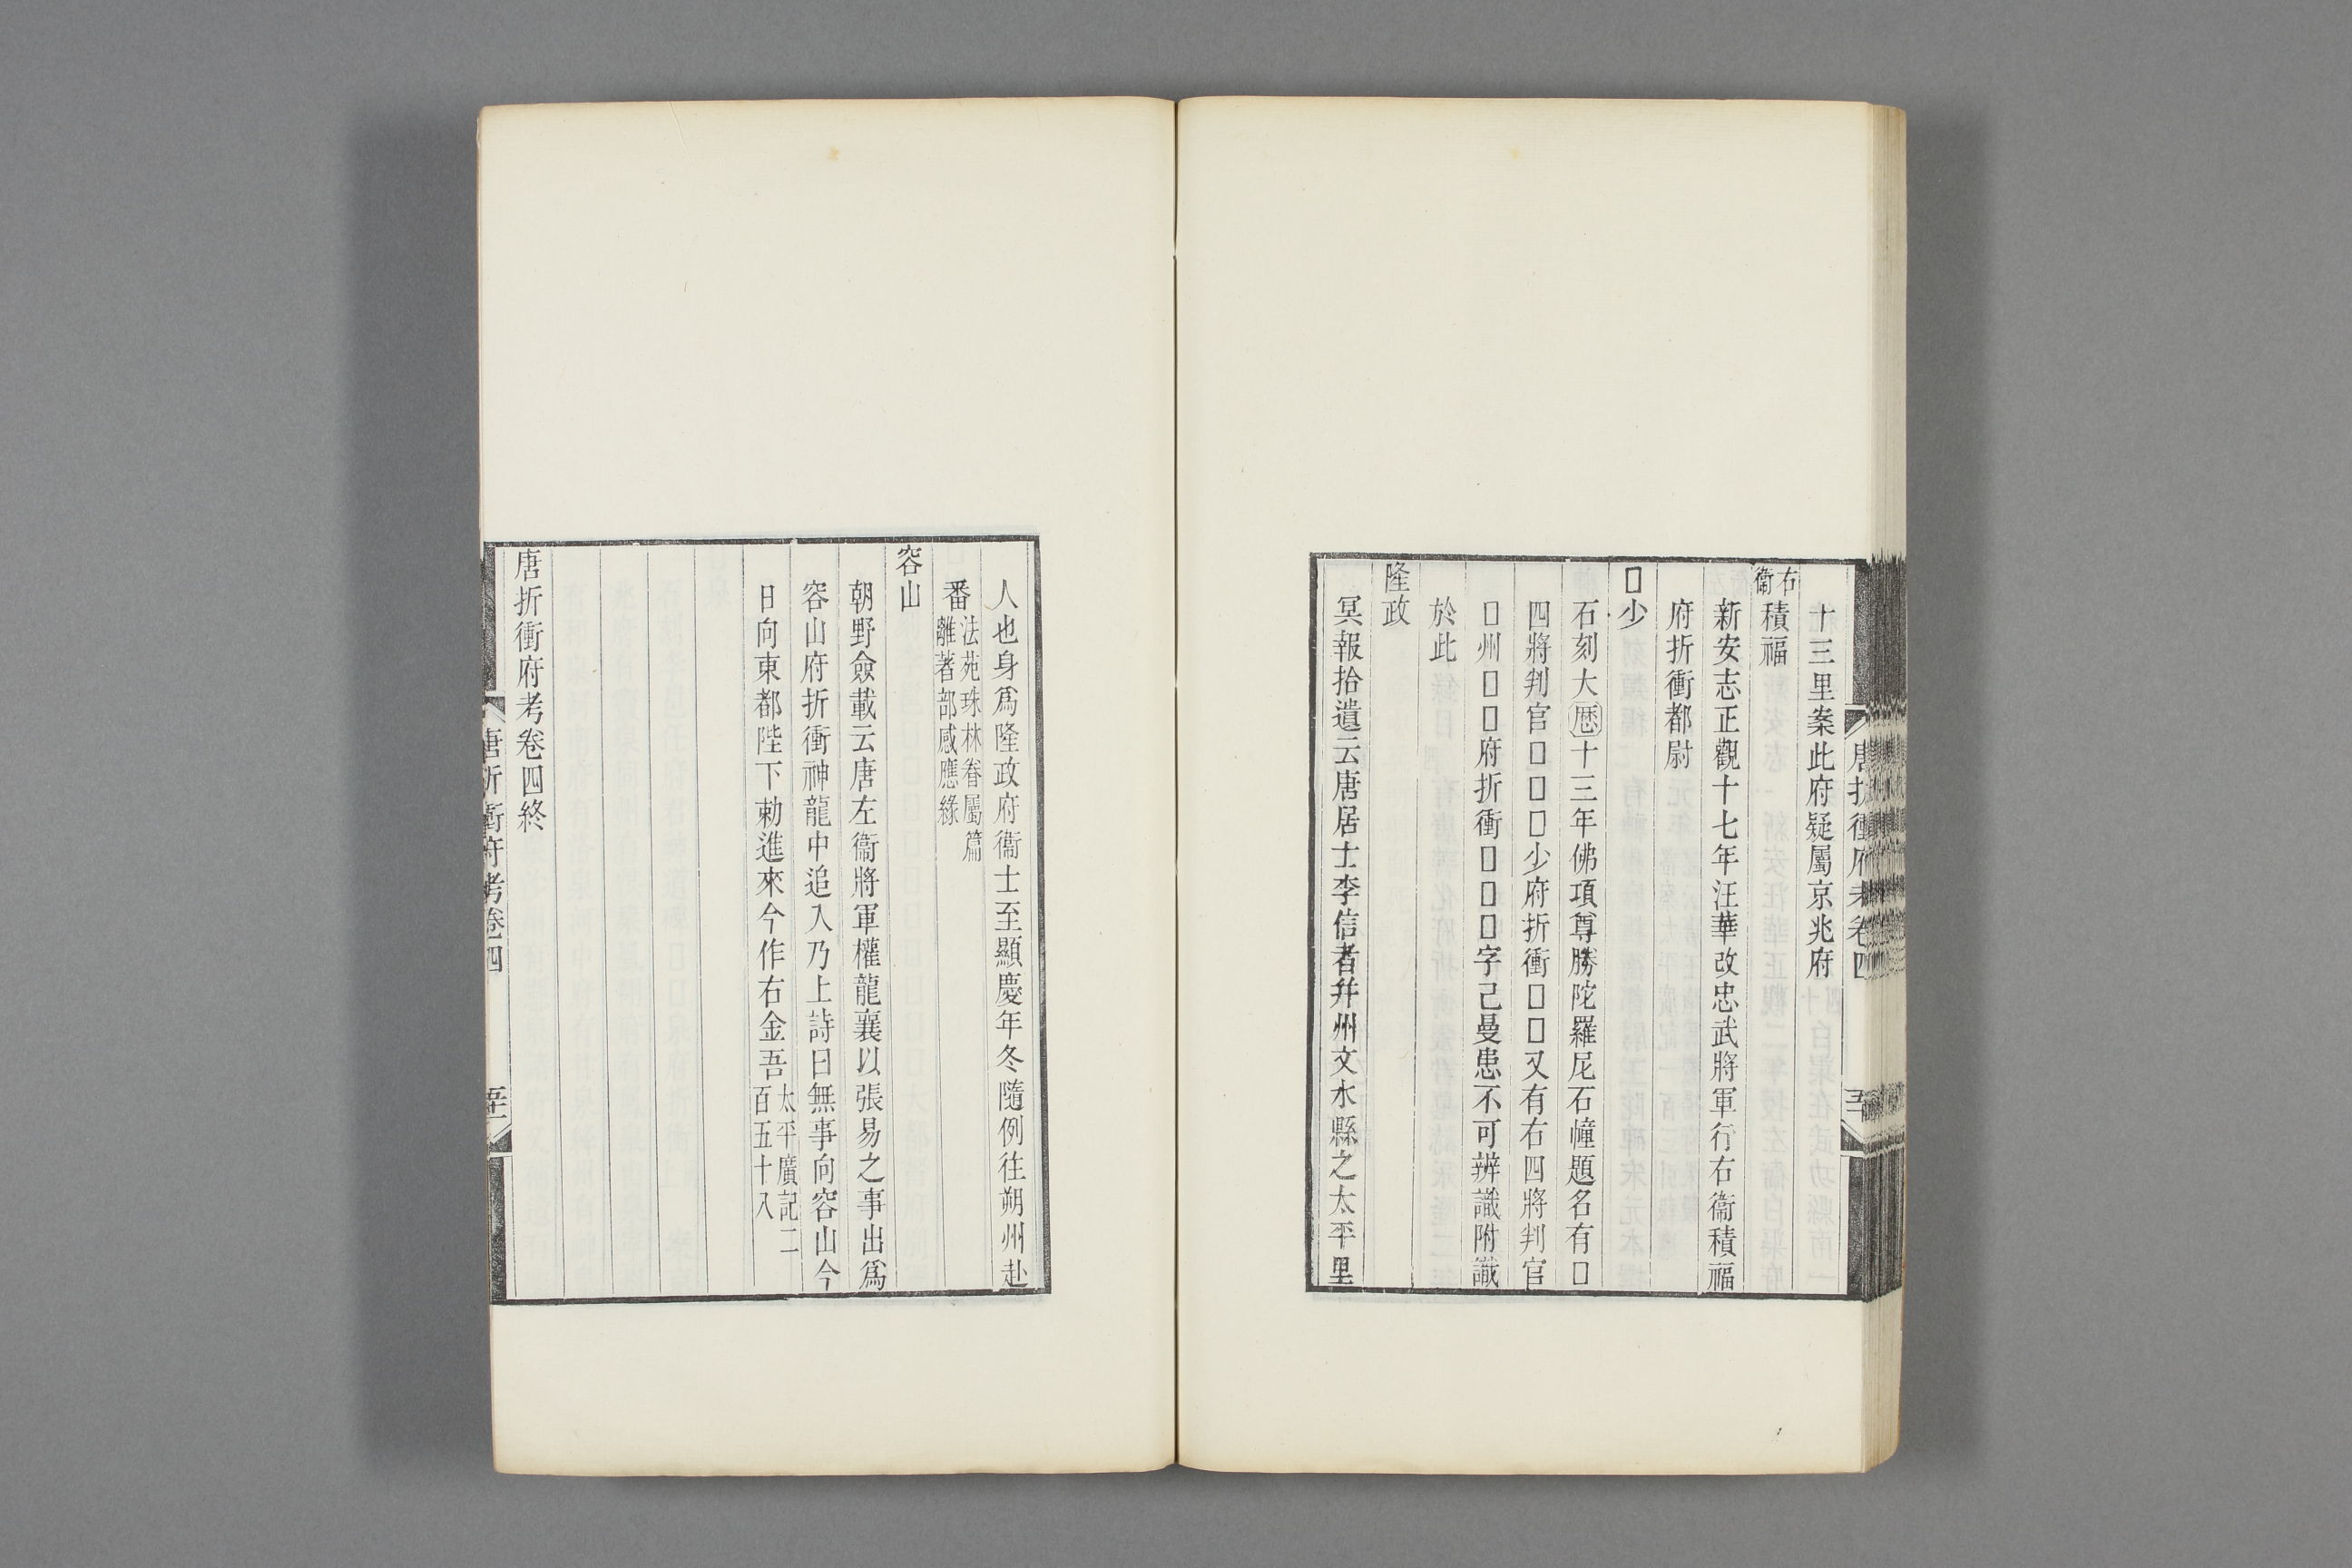 十三里案此府疑屬京兆府
右衞積福
新安志正觀十七年汪華改忠武將軍行右衞積福
府折衝都尉
□少
石刻大曆十三年佛項尊勝陀羅尼石幢題名有□
四將判官□□□少府折衝□□又有右四將判官
□州□□府折衝□□□字己曼患不可辨識附識
於此
隆政
冥報拾遺云唐居士李信者幷州文水縣之太平里
人也身爲隆政府衞士至顯慶年冬隨例往朔州赴
番法苑珠林眷屬篇
離著部感應緣
容山
朝野僉載云唐左衞將軍權龍襄以張易之事出爲
容山府折衝神龍中追入乃上詩曰無事向容山今
日向東都陛下勅進來今作右金吾太平廣記二
百五十八
唐折衝府考卷四終
唐折衝府考卷四